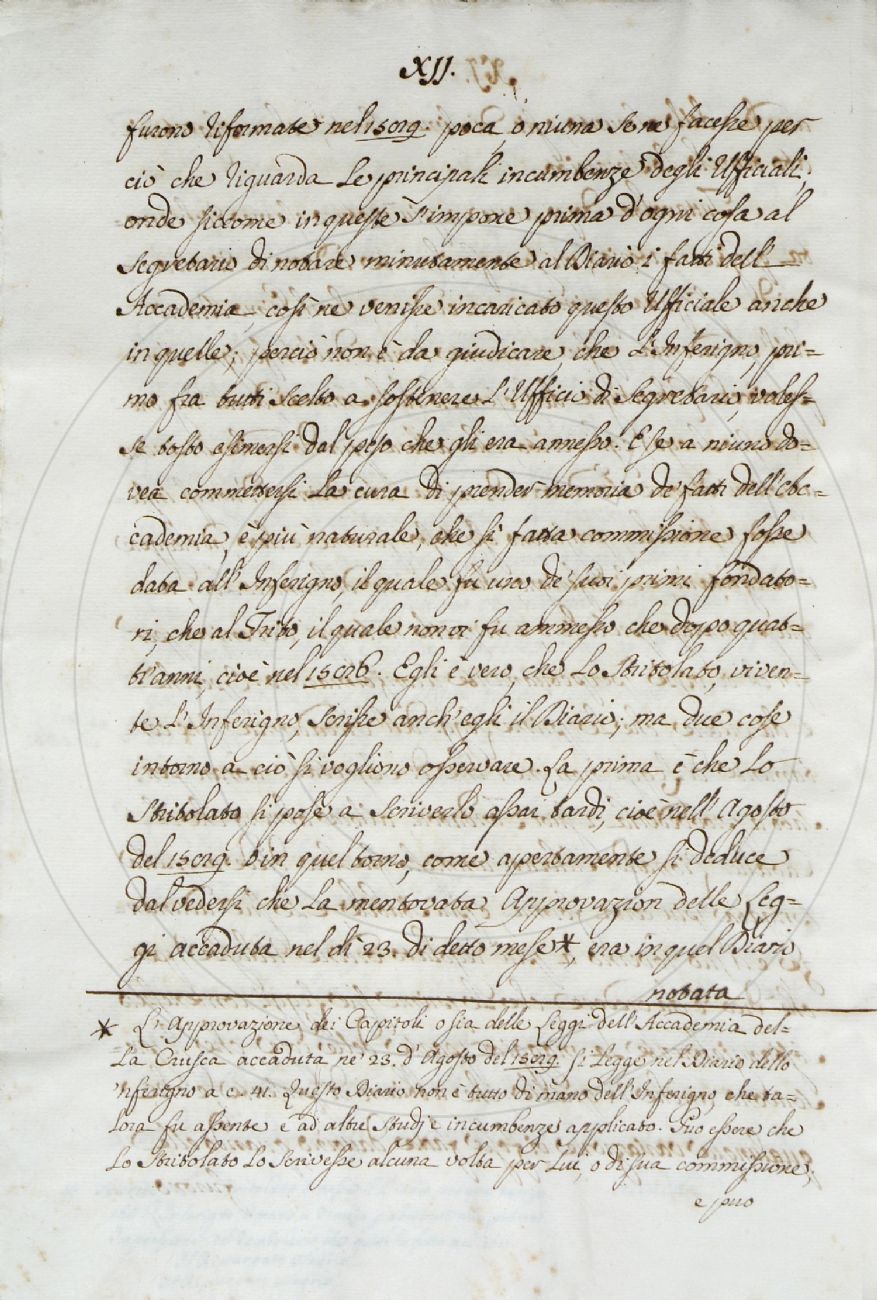 XII.
furono riformate nel 1589. poca, o niuna se ne facesse per
ciò che riguarda le principali incumbenze degli Ufficiali,
onde siccome in queste s'impone prima d'ogni cosa al
Segretario di notare minutamente al Diario i fatti dell'
Accademia, così ne venisse incaricato questo Ufficiale anche
in quelle; perciò non è da giudicare, che l'Inferigno, pri=
mo fra tutti scelto a sostenere l'Ufficio di Segretario, voles=
se tosto esimersi dal peso che gli era annesso. E se a niuno do=
vea commettersi la cura di prender memoria de' fatti dell'Ac=
cademia, è più naturale, che sì fatta commissione fosse
data all'Inferigno, il quale fu uno de' suoi primi fondato=
ri, che al Trito, il quale non vi fu ammesso che dopo quat=
tr'anni, cioè nel 1586. Egli è vero, che lo Stritolato, viven=
te l'Inferigno, scrisse anch'egli il Diario; ma due cose
intorno a ciò si vogliono osservare. La prima è che lo
Stritolato si pose a scriverlo assai tardi, cioè nell'Agosto
del 1589. o in quel torno, come apertamente si deduce
dal vedersi che la mentovata Approvazion delle Leg=
gi accaduta nel dì 23. di detto mese*, era in quel Diario
notata
* L'Approvazione dei Capitoli o sia delle Leggi dell'Accademia del=
la Crusca accaduta ne' 23. d'Agosto del 1589. si legge nel Diario dello
'nferigno a c. 41. Questo Diario non è tutto di mano dell'Inferigno, che ta=
lora fu assente e ad altri Studj e incumbenze applicato. Può essere che
lo Stritolato lo scrivesse alcuna volta per lui, o di sua commissione;
e può